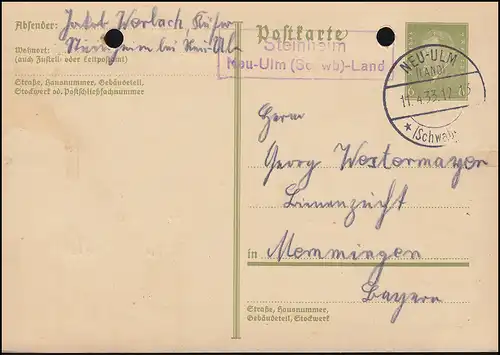 Absender: Jakob Worbach,
Steinheim bei Neu-Ulm
Wohnort:
(auch Zustell- oder Leitpostamt)
Straße, Hausnummer, Gebäudeteil,
Stockwerk od. Postschließfachnummer
Postkarte
Steinheim
Neu-Ulm (Schwb)-Land
NEU-ULM
(LAND)
11.4.33.12-13
* (Schwab)
Herrn
Georg Westermayer
Bienenzucht
in Memmingen
Bayern
Straße, Hausnummer,
Gebäudeteil, Stockwerk